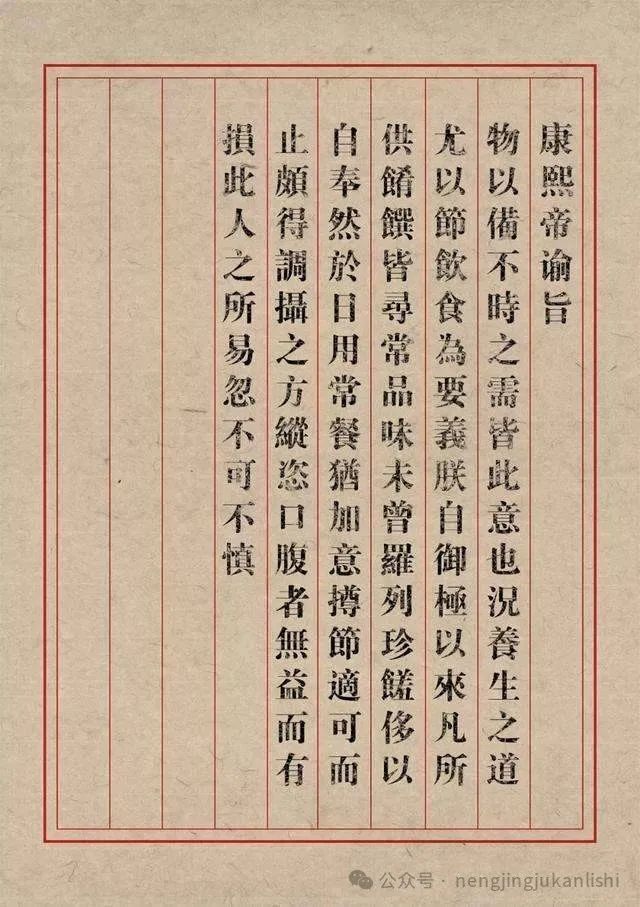 康熙帝谕旨
物以備不時之需皆此意也況養生之道
尤以節飲食為要義朕自御極以來凡所
供餚饌皆尋常品味未曾羅列珍饈侈以
自奉然於日用常餐猶加意撙節適可而
止頗得調攝之方縱恣口腹者無益而有
損此人之所易忽不可不慎
公众号 · nengjingjukanlishi